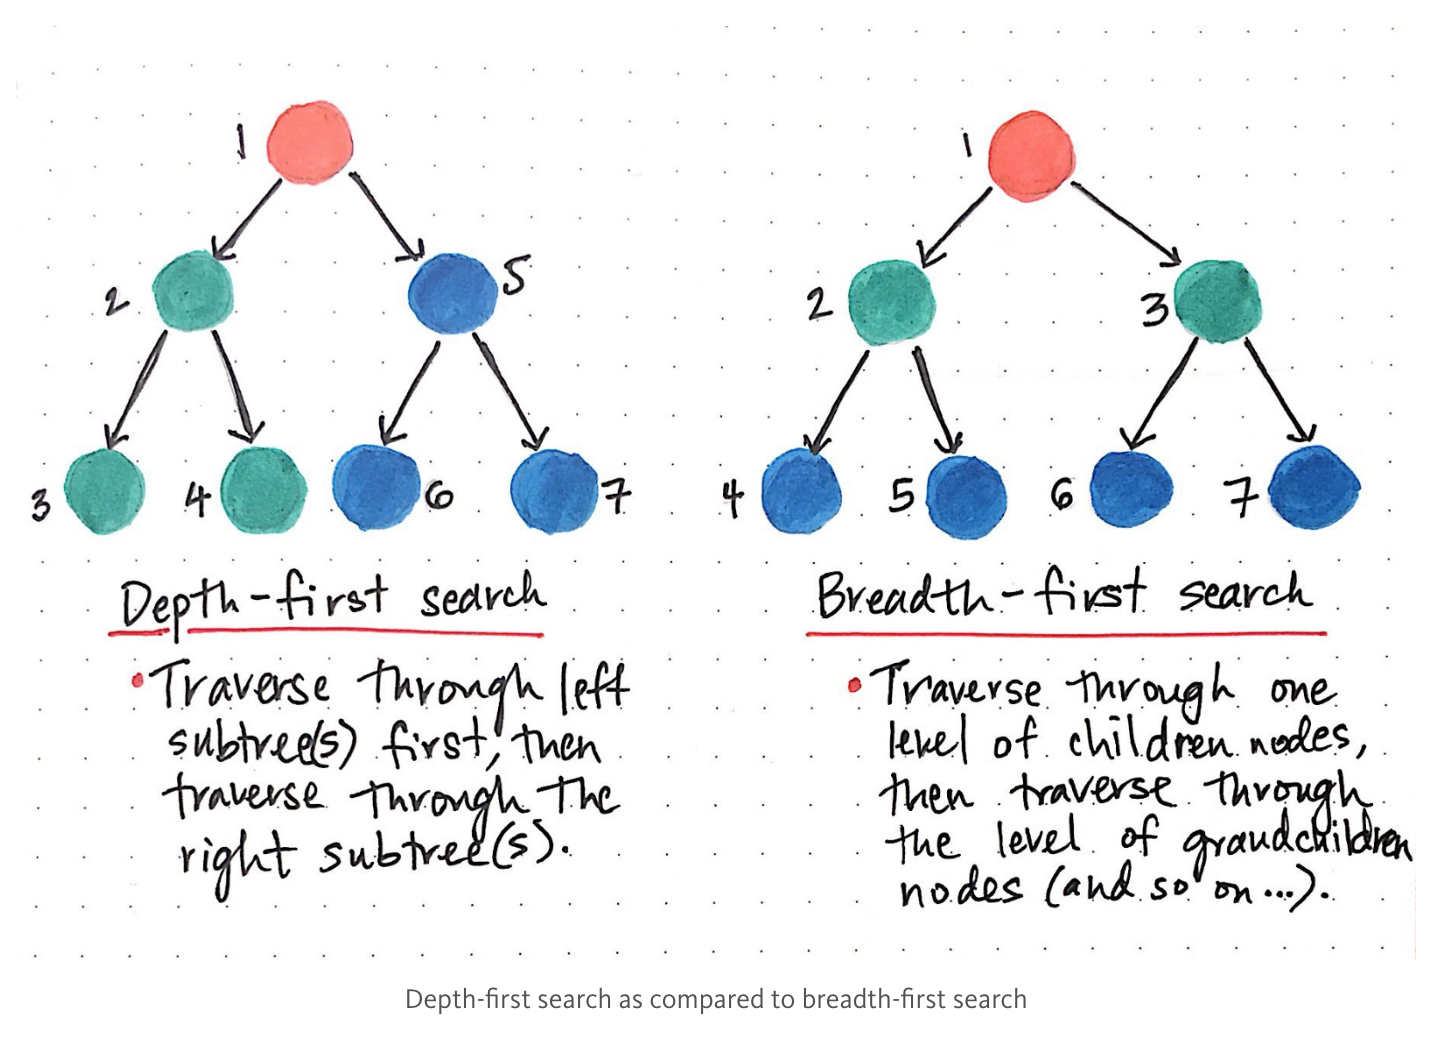 1
2
5
3
4
6
7
Depth-first search
• Traverse through left
subtree(s) first, then
traverse through the
right subtree(s).
1
2
3
4
5
6
7
Breadth-first search
• Traverse through one
level of children nodes,
then traverse through
the level of grandchildren
nodes (and so on...).
Depth-first search as compared to breadth-first search